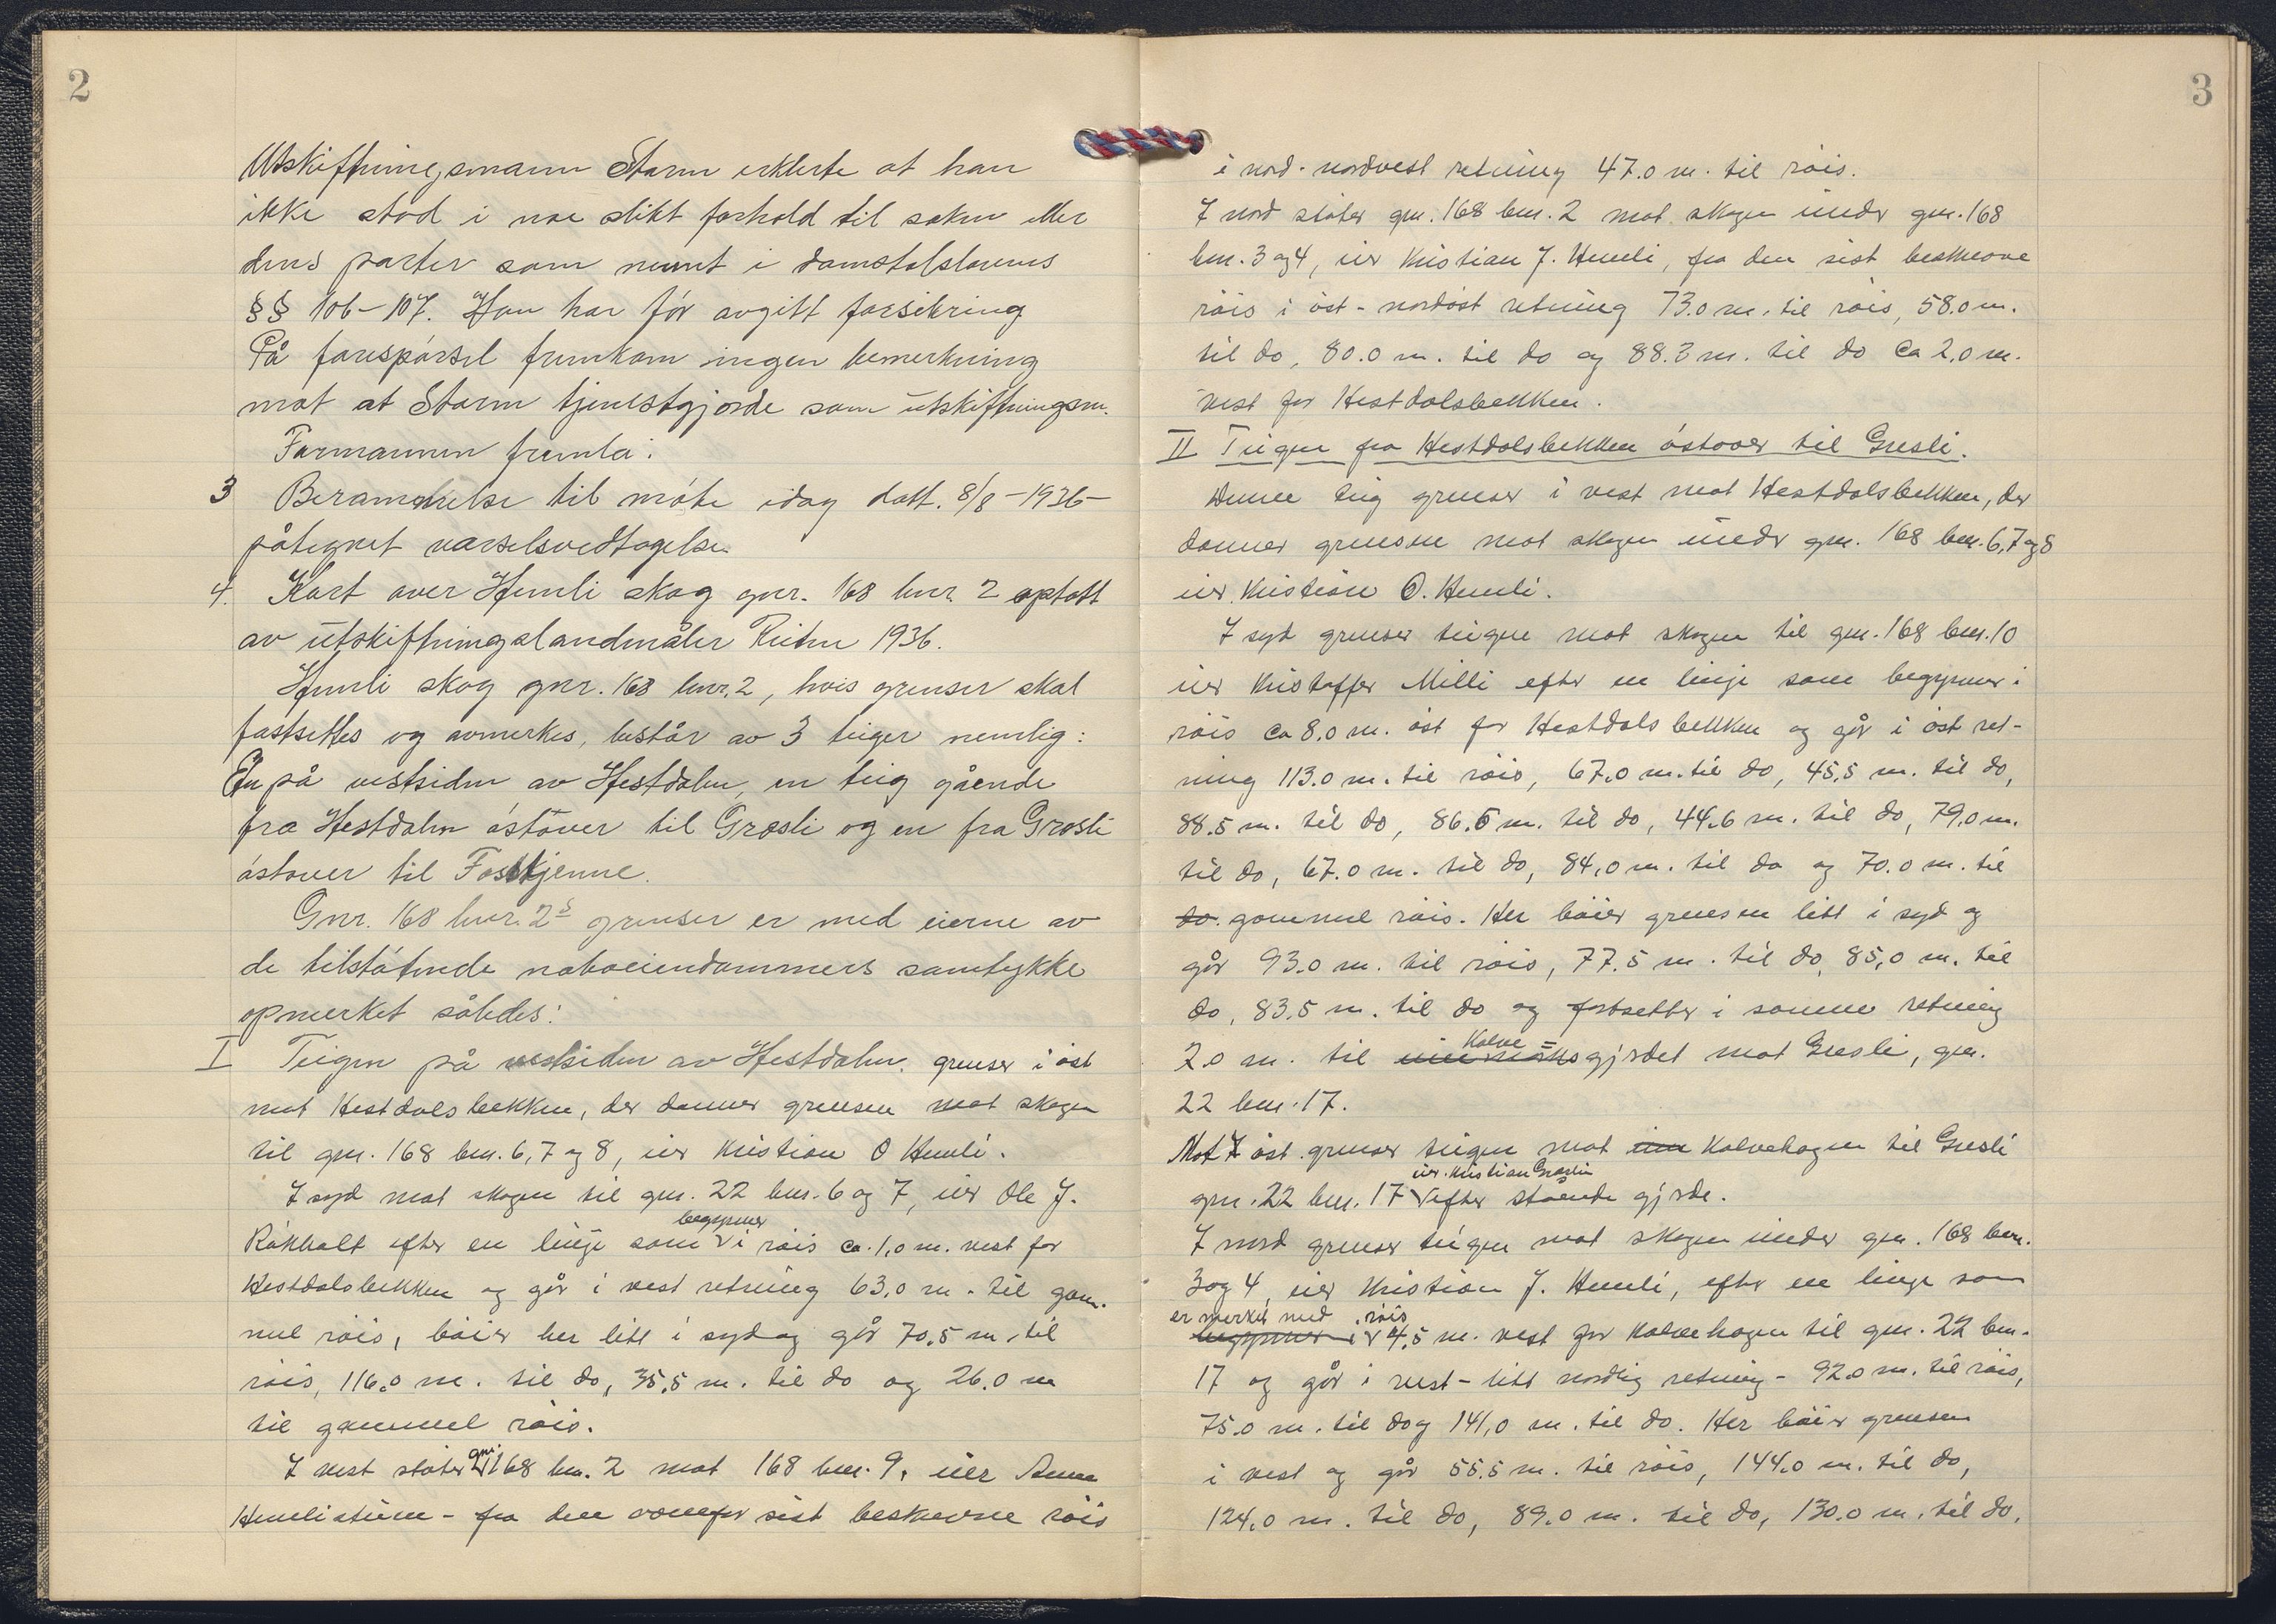 2
Utskiftningsmann Storm erklerte at han
ikke stod i noe slikt forhold til saken eller
dens parter som nevnt i domstolslovens
§§ 106-107. Han har før avgitt forsikring
På forespørsel fremkom ingen bemerkning
mot at Storm tjenestgjorde som utskiftningsm.
Formannen fremla:
3 Berammelse til møte idag datt. 8/8-1936-
påtegnet varselsvedtagelse.
4. Kart over Hemli skog gnr. 168 bnr. 2 optatt
av utskiftningslandmåler Ruten 1936.
Hemli skog gnr. 168 bnr. 2, hvis grenser skal
fastsettes og avmerkes, består av 3 teiger nemlig:
En på vestsiden av Hestdalen, en teig gående
fra Hestdalen østover til Grøsli og en fra Grøsli
østover til Fosstjenne.
Gnr. 168 bnr. 2s grenser er med eierne av
de tilstøtende naboeiendommers samtykke
opmerket således:
I Teigen på vestsiden av Hestdalen. grenser i øst
mot Hestdalsbekken, der danner grensen mot skogen
til gnr. 168 bnr. 6, 7 og 8, eier Kristian O Hemli.
I syd mot skogen til gnr. 22 bnr. 6 og 7, eier Ole J.
Råkholt efter en linje som begynner i røis ca. 1,0 m. vest for
Hestdalsbekken og går i vest retning 63,0 m. til gam-
mel røis, bøier her litt i syd og går 70,5 m. til
røis, 116,0 m. til do, 35,5 m. til do og 26.0 m
til gammel røis.
I vest støter gnr. 168 bnr. 2 mot 168 bnr. 9, eier Anna
Hemlistuen - fra den ovenfor sist beskrevne røis
3
i nord-nordvest retning 47.0 m. til røis.
I nord støter gnr. 168 bnr. 2 mot skogen under gnr. 168
bnr. 3 og 4, eier Kristian J. Hemli, fra den sist beskrevne
røis i øst-nordøst retning 73.0 m. til røis, 58.0 m.
til do, 80.0 m. til do og 88.3 m. til do ca 2,0 m.
vest for Hestdalsbekken.
II Teigen fra Hestdalsbekken østover til Grøsli.
Denne teig grenser i vest mot Hestdalsbekken, der
danner grensen mot skogen under gnr. 168 bnr. 6, 7 og 8
eier Kristian O. Hemli.
I syd grenser teigen mot skogen til gnr. 168 bnr. 10
eier Kristoffer Milli efter en linje som begynner i
røis ca 8,0 m. øst for Hestdalsbekken og går i øst ret-
ning 113.0 m. til røis, 67.0 m. til do, 45,5 m. til do,
88.5 m. til do, 86.5 m. til do, 44.6 m. til do, 79,0 m.
til do, 67.0 m. til do, 84,0 m. til do og 70.0 m. til
do. gammel røis. Her bøier grensen litt i syd og
går 93.0 m. til røis, 77.5 m. til do, 85,0 m. til
do, 83.5 m. til do og fortsetter i samme retning
2.0 m. til Kalve=gjerdet mot Grøsli, gnr.
22 bnr. 17.
Mot øst grenser teigen mot Kalvehagen til Grøsli
gnr. 22 bnr. 17 eier Kristian Grøslie efter stående gjerde.
I nord grenser teigen mot skogen under gnr. 168 bnr.
3 og 4, eier Kristian J. Hemli, efter en linje som
er merket med røis begynner i 4,5 m. vest for Kalvehagen til gnr. 22 bnr.
17 og går i vest - litt nordlig retning - 92.0 m. til røis,
75.0 m. til do og 141,0 m. til do. Her bøier grensen
i vest og går 55.5 m. til røis, 144.0 m. til do,
124.0 m. til do, 89.0 m. til do, 130.0 m. til do,